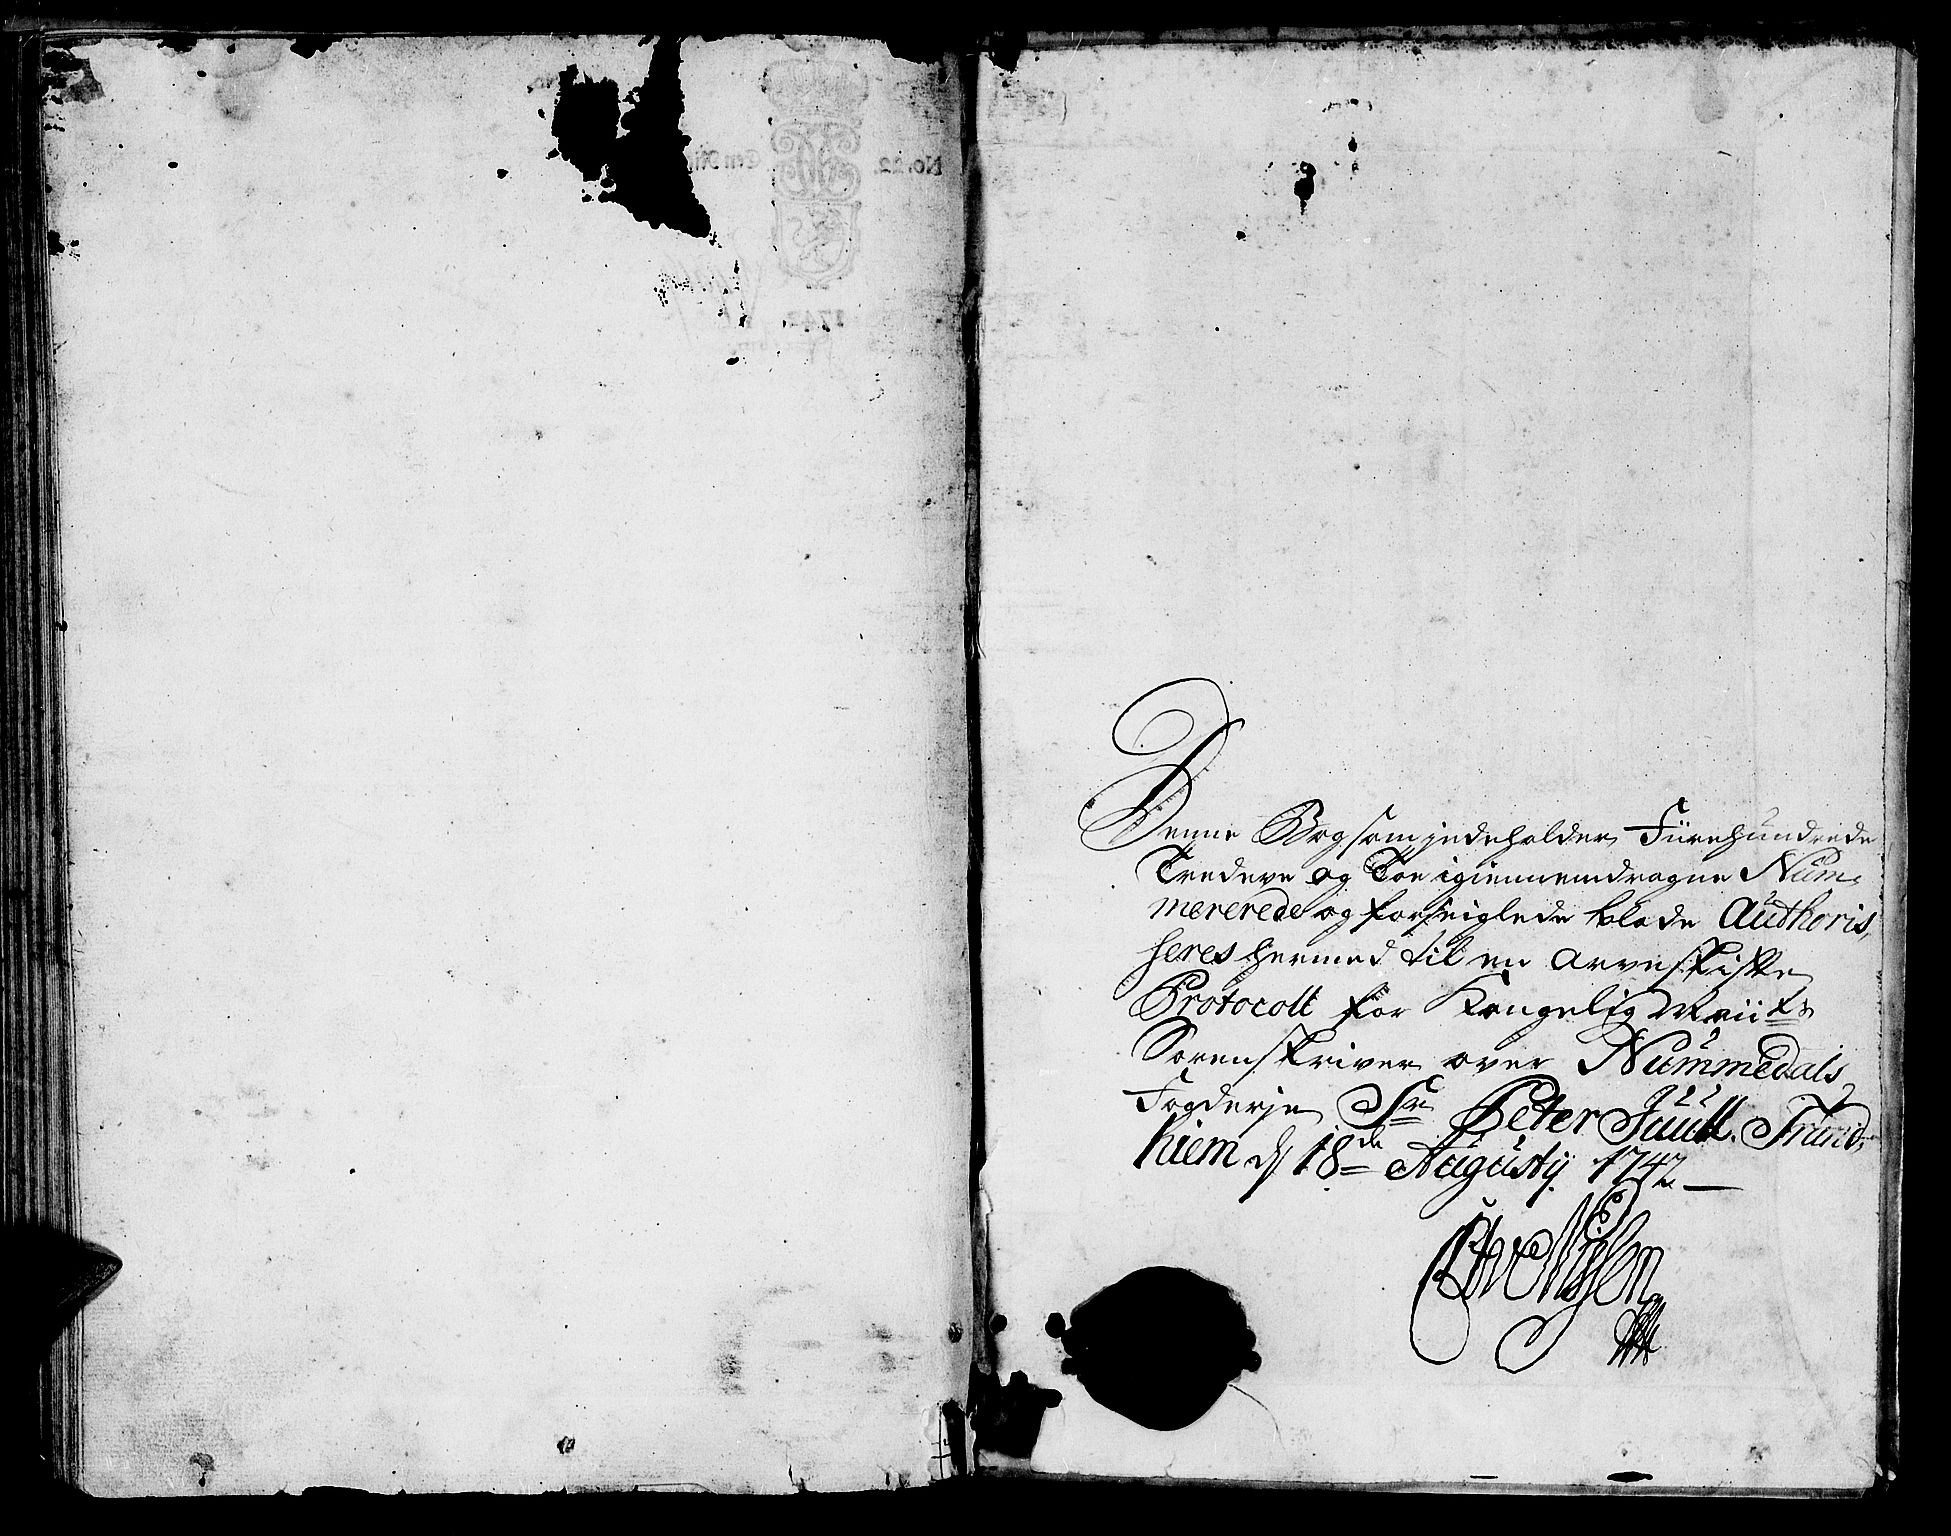 No. 22.
1742.
Denne Bog som jndeholder Fürehundrede
Tredeve og Toe igiennemdragne Nüm-
mererede og forseiglede blade Authoris,
heres hermed til en arveskifte
Protocoll for Kongelig Maiits
Sorenskriver over Nümmedals
Fogderje Sr Peter Jüüll. Trund,
hiem dl 18de Augüsty 1742